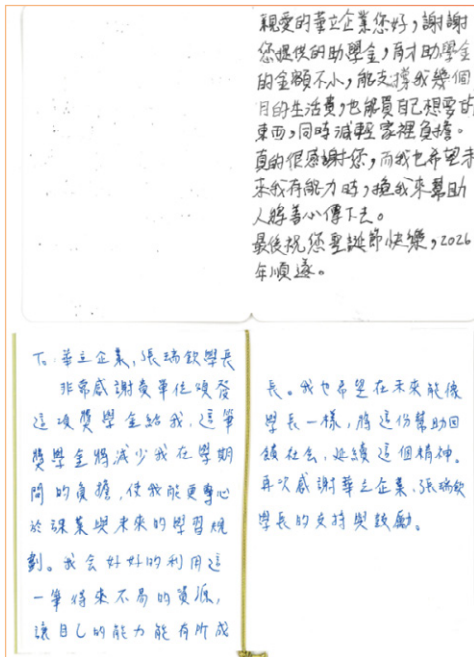 親愛的華立企業您好，謝謝
您提供的助學金，育才助學金
的金額不小，能支撐我幾個
月的生活費，也能買自己想要的
東西，同時減輕家裡負擔。
真的很感謝您，而我也希望未
來我有能力時，換我來幫助
人將善心傳下去。
最後祝您聖誕節快樂，2026
年順遂。
To 華立企業，張瑞欽學長
非常感謝貴單位頒發
這項獎學金給我，這筆
獎學金將減少我在學期
間的負擔，使我能更專心
於課業與未來的學習規
劃。我会好好的利用這
一筆得來不易的資源，
讓自己的能力能有所成
長。我也希望在未來能像
學長一樣，將這份幫助回
饋社会，延續這個精神。
再次感謝華立企業，張瑞欽
學長的支持與鼓勵。